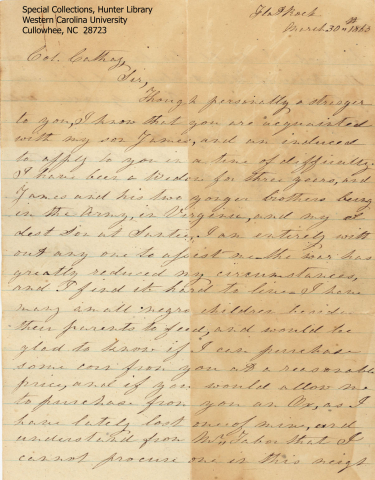 Special Collections, Hunter Library
Western Carolina University
Cullowhee, NC 28723
Flat Rock
March 30th 1863
Col. Cathey
Sir,
Though personally a stranger
to you, I know that you are acquainted
with my son James, and am induced
to apply to you in a time of difficulty.
I have been a Widow for three years, and
James and his two yonger brothers being
in the Army, in Verginia, and my ol
dest Son at Santee, I am entirely with
out any one to assist me the war has
greatly reduced my circumstances,
and I find it hard to live I have
many small negro children beside
their parents to feed, and would be
glad to know if I can purchase
some corn from you at a reasonable
price, and if you would allow me
to purchase from you an Ox, as I
have lately lost one of mine, and
understand from Mr. Tabor that I
cannot procure one in this neigh